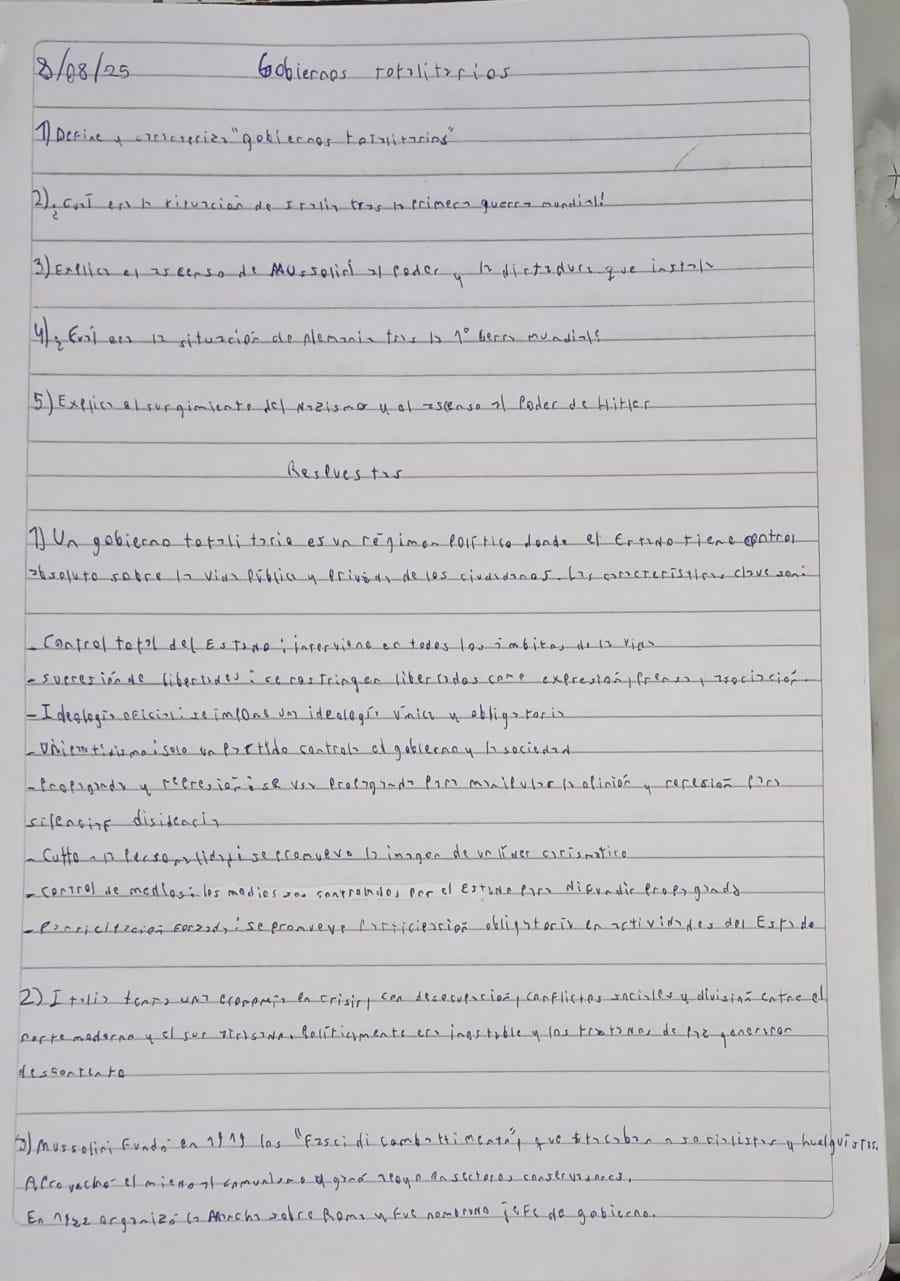 8/08/25 Gobiernos totalitarios
1) Define y caracteriza "gobiernos totalitarios"
2) ¿Cuál era la situación de Italia tras la primera guerra mundial?
3) Explica el ascenso de Mussolini al Poder y la dictadura que instala
4) ¿Cuál era la situación de Alemania tras la 1° Guerra mundial?
5) Explica el surgimiento del Nazismo y el ascenso al Poder de Hitler
Respuestas
1) Un gobierno totalitario es un régimen político donde el Estado tiene control
absoluto sobre la vida Pública y Privada de los ciudadanos. Las características clave son:
- Control total del Estado: interviene en todos los ámbitos de la vida
- supresión de libertades: se restringen libertades como expresión, Prensa, asociación.
- Ideología oficial: se impone una ideología única y obligatoria
- Unipartidismo: solo un partido controla el gobierno y la sociedad
- Propaganda y represión: se usa Propaganda para manipular la opinión y represión para
silenciar disidencia
- Culto a la Personalidad: se promueve la imagen de un líder carismático
- control de medios: los medios son controlados por el Estado para difundir Propaganda
- Participación forzada: se promueve Participación obligatoria en actividades del Estado
2) Italia tenía una economía en crisis, con desocupación, conflictos sociales y división entre el
norte moderno y el sur atrasado. Políticamente era inestable y los tratados de Paz generaron
descontento
3) Mussolini Fundó en 1919 los "Fasci di combattimento", que atacaban a socialistas y huelguistas.
Aprovechó el miedo al comunismo y ganó apoyo en sectores conservadores.
En 1922 organizó la Marcha sobre Roma y fue nombrado jefe de gobierno.